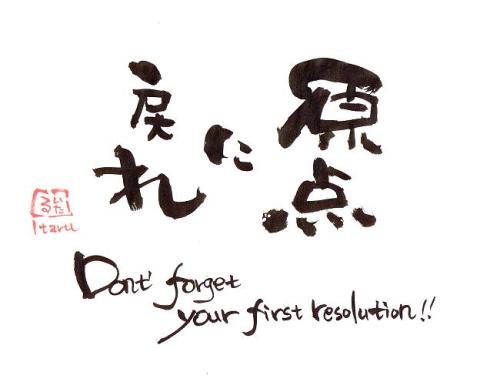 原点
に
戻れ
いた
る
Itaru
Dont' forget
your first resolution!!